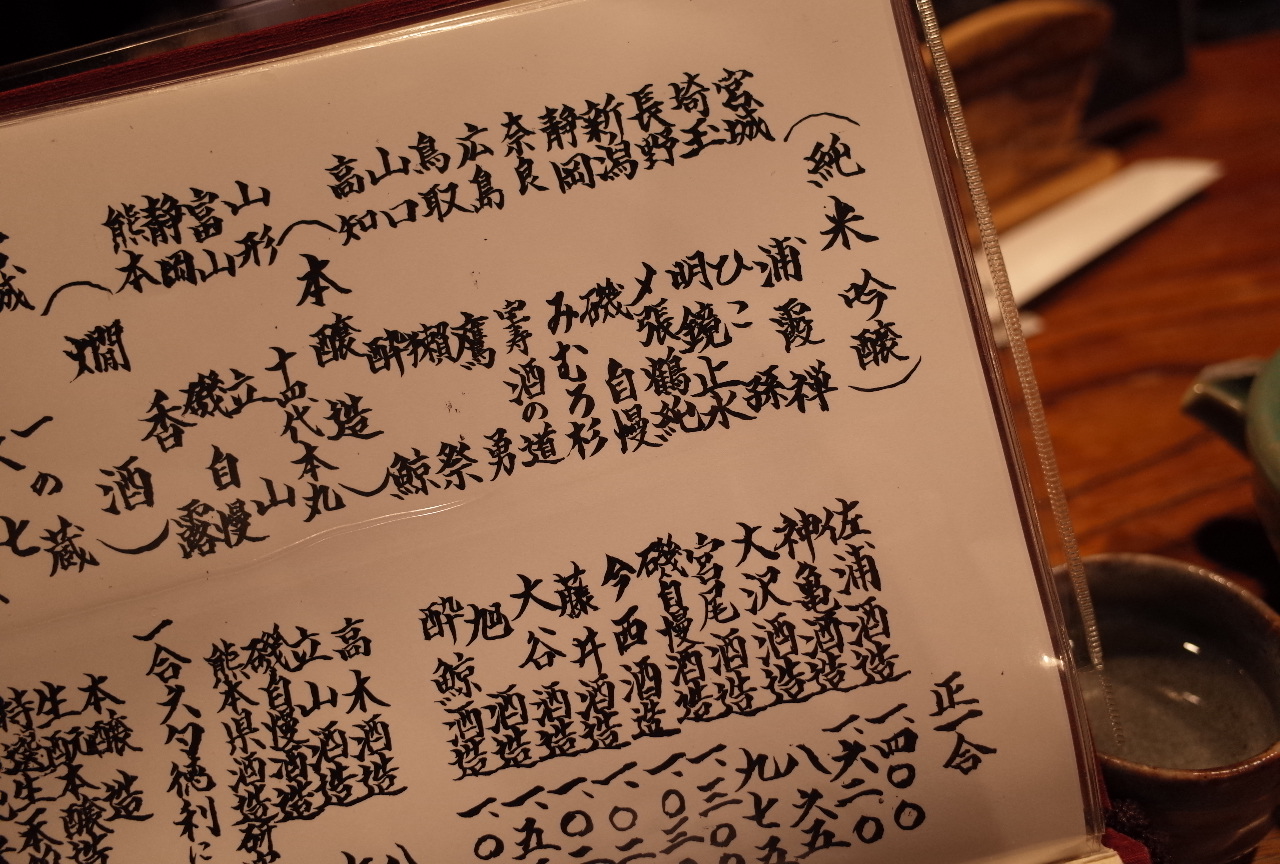 （純米吟醸） 正一合
宮城 浦霞 禅 佐浦酒造 一、四〇〇
埼玉 ひこ孫 神亀酒造 一、六二〇
長野 明鏡止水 大沢酒造 八六五
新潟 〆張鶴 純 宮尾酒造 九七五
静岡 磯自慢 磯自慢酒造 一、三三〇
奈良 みむろ杉 今西酒造 一、〇
広島 宝寿 酒の道 藤井酒造 一、〇二
鳥取 鷹勇 大谷酒造 一、〇二
山口 獺祭 旭酒造 一、五
高知 酔鯨 酔鯨酒造 一、〇
（本醸造）
山形 十四代 本丸 高木酒造 八
富山 立山 立山酒造
静岡 磯自慢 磯自慢酒造
熊本 香露 熊本県酒造研
（燗酒） 一合六勺徳利に
城 一の蔵 本醸造
生酛本醸造
特選生